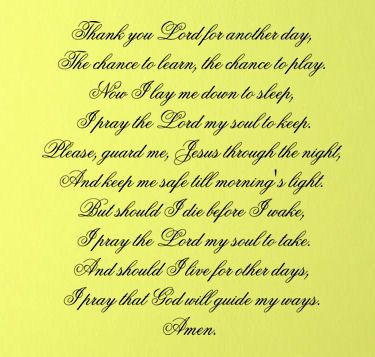 Thank you Lord for another day,
The chance to learn, the chance to play.
Now I lay me down to sleep,
I pray the Lord my soul to keep.
Please, guard me, Jesus through the night,
And keep me safe till morning's light.
But should I die before I wake,
I pray the Lord my soul to take.
And should I live for other days,
I pray that God will guide my ways.
Amen.